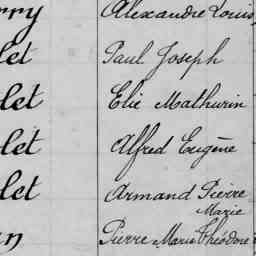 rry Alexandre Louis
let Paul Joseph
let Elie Mathurin
let Alfred Eugène
let Armand Pierre
Marie
an Pierre Marie Théodore